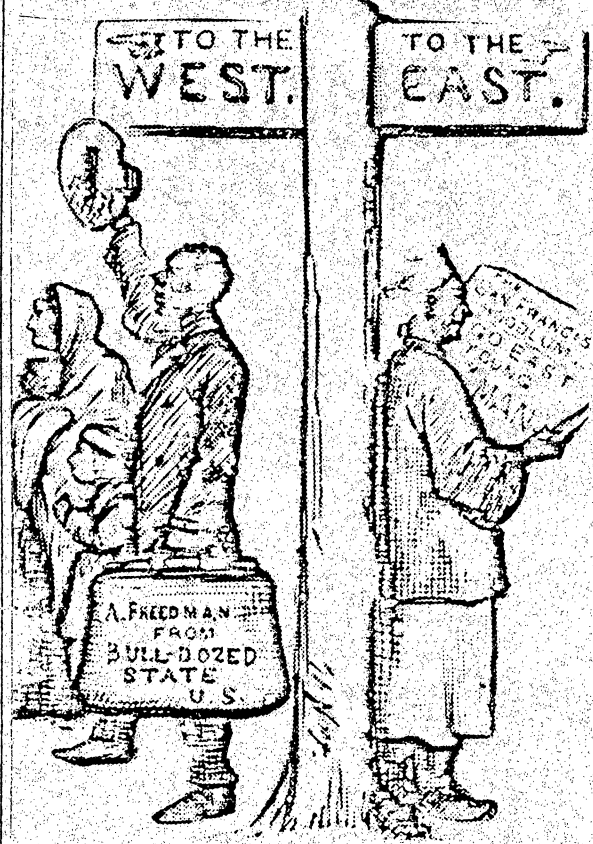 TO THE
WEST.
TO THE
EAST.
SAN FRANCIS
HOODLUM
GO EAST
YOUNG
MAN
A. FREEDMAN
FROM
BULL-DOZED
STATE
U.S.